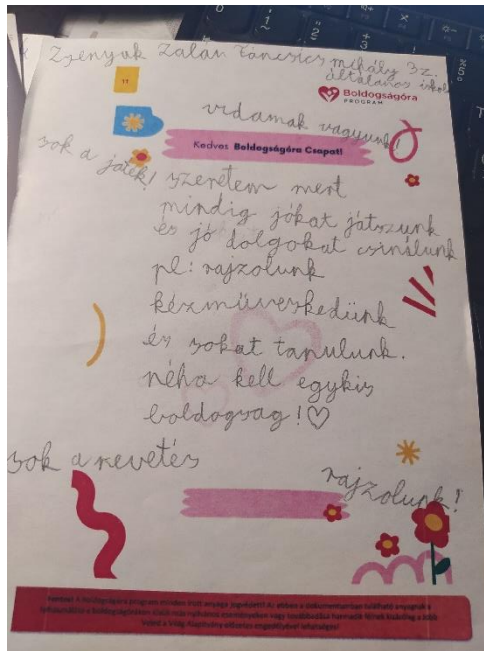 Zsenyuk Zalán Táncsics mihály sz.
általános iskol
Boldogságóra
PROGRAM
vidamak vagyunk!
Kedves Boldogságóra Csapat!
sok a játék!
szeretem mert
mindig jókat játszunk
és jó dolgokat csinálunk
pl: rajzolunk
kézműveskedünk
és sokat tanulunk.
néha kell egykis
boldogság!♡
sok a nevetés
rajzolunk!